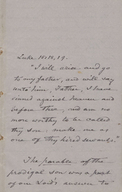 Luke XV, 18, 19.
"I will arise, and go
to my father, and will say
unto him, Father, I have
sinned against heaven and
before thee, and am no
more worthy to be called
thy son: make me as
one of thy hired servants."
The parable of the
prodigal son was a part
of our Lord's answer to